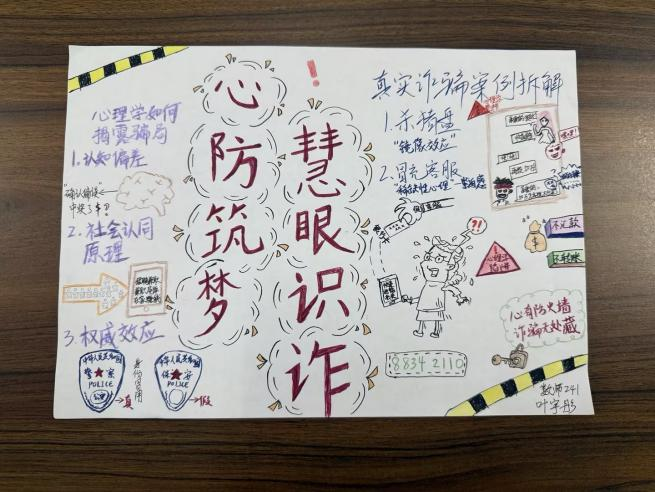 心理学如何
揭露骗局
1.认知偏差
"确认偏误"
中奖了!?
2.社会认同
原理
3.权威效应
中华人民共和国
警察
POLICE
公章
→真
身份冒用
中华人民共和国
保安
POLICE
→假
心防筑梦
慧眼识诈
!
真实诈骗案例拆解
1.杀猪盘
"镜像效应"
2.冒充客服
?!
8834 2110
不汇款
不转账
心有防火墙
诈骗无处藏
教师241
叶宇彤